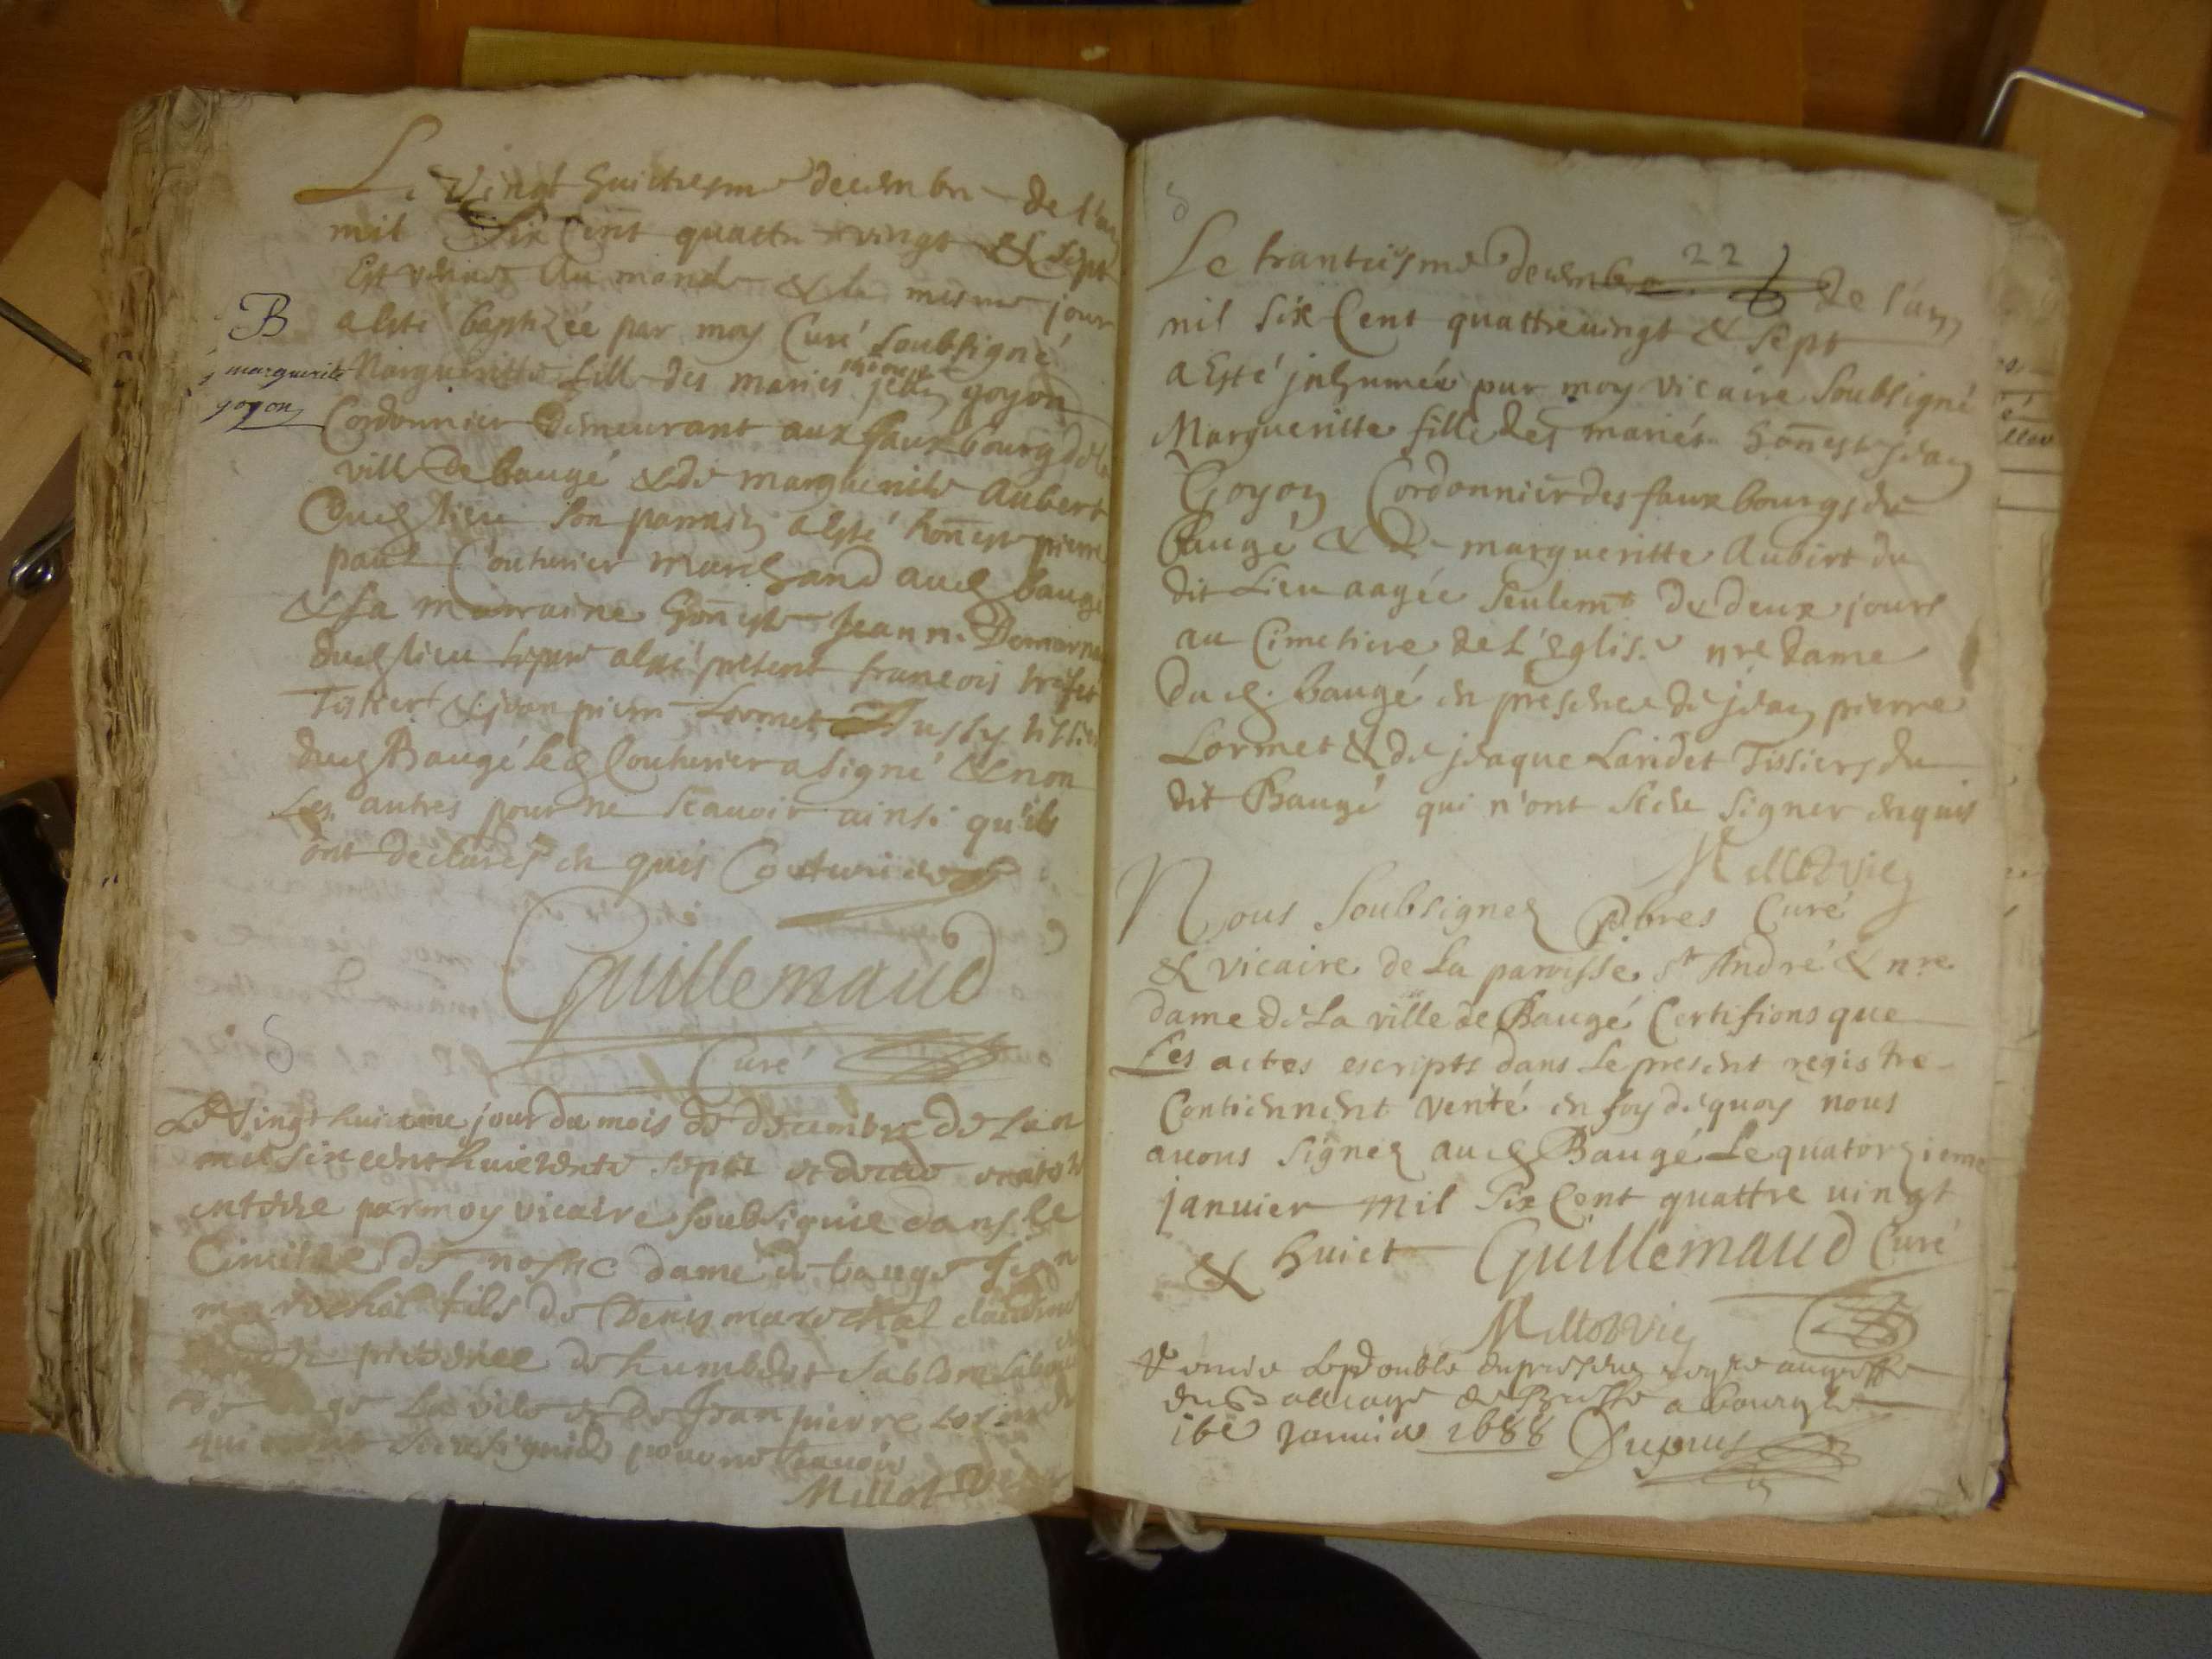 Le Vingt huictiesme decembre de l'an
mil Six Cent quattre vingt & sept
Est venue Au monde & le mesme jour
a esté baptizée par moy Curé soubsigné
B
marguerite
goyon
Margueritte fille des mariés honneste jean goyon
Cordonnier demeurant aux faux bourg de la
ville de baugé & de margueritte Aubert
dud lieu son parrain a esté hon est pierre
paul Couturier marchand aud baugé
& sa marraine hon este Jeanne
dud lieu a esté présent francois
Tissier & jean pierre Lormet tissier
dud Baugé led Couturier a signé & non
Les autres pour ne scavoir ainsi qu'ils
ont declarés en quis Couturier
Guillemaud
Curé
Le Vingt huictme jour du mois de decembre de l'an
mil six cent huictente sept
enterre par moy vicaire soubsigne dans le
Cimitire de nostre dame de bauge Jean
marechal fils de Denis marechal
presence de humbert
la ville & de Jean pierre
qui n'ont signés pour ne scavoir
Millot vic
22
Le trantiesme decembre de l'an
mil six Cent quattre uingt & sept
a Esté jnhumée par moy vicaire soubsigné
Margueritte fille des mariés honest jean
Goyon Cordonnier des faux bourgs de
Baugé & de margueritte Aubert du
dit Lieu aagée seulemt de deux jours
au Cimetiere de L'Eglise nre dame
dud. baugé en presence de jean pierre
Lormet & de jeaque Landet Tissiers du
dit Baugé qui n'ont sceu signer enquis
Millot vic
Nous soubsignez Pbres Curé
& vicaire de La paroisse st André & nre
dame de La ville de Baugé Certifions que
Les actes escripts dans Le present registre
Contiennent verité en foy de quoy nous
auons signez aud Baugé Le quatorzieme
januier mil six Cent quattre uingt
& huict Guillemaud Curé
Millot vic
Le double du present au greffe
du Balliage de Bresse a bourg le
16e Januier 1688 Dupuis